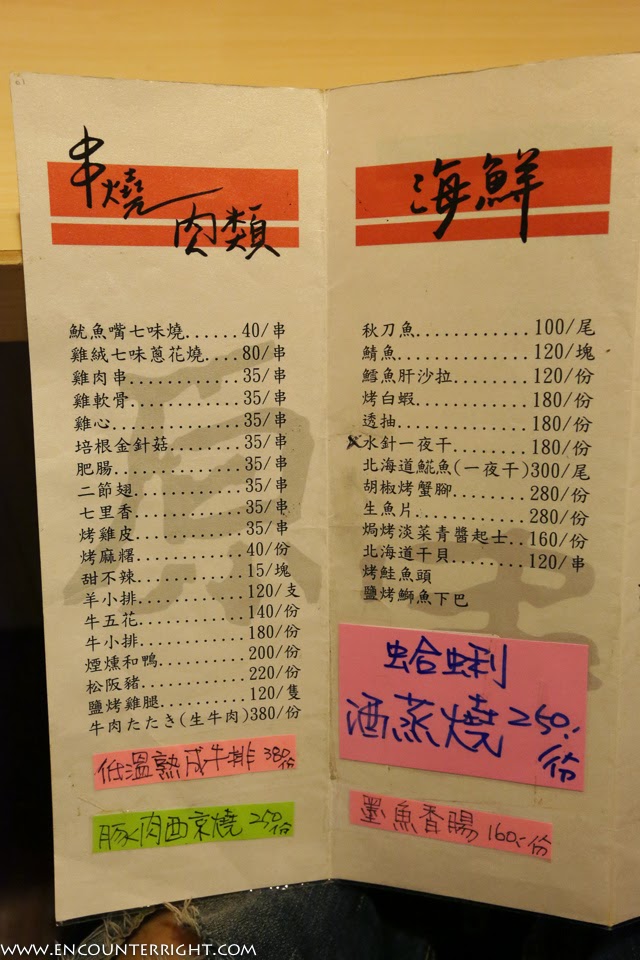 串燒
肉類
魷魚嘴七味燒......40/串
雞絨七味蔥花燒....80/串
雞肉串............35/串
雞軟骨............35/串
雞心..............35/串
培根金針菇........35/串
肥腸..............35/串
二節翅............35/串
七里香............35/串
烤雞皮............35/串
烤麻糬............40/份
甜不辣............15/塊
羊小排............120/支
牛五花............140/份
牛小排............180/份
煙燻和鴨..........200/份
松阪豬............220/份
鹽烤雞腿..........120/隻
牛肉たたき(生牛肉)380/份
低溫熟成牛排 380/份
豚肉西京燒 250/份
海鮮
秋刀魚............100/尾
鯖魚..............120/塊
鱈魚肝沙拉........120/份
烤白蝦............180/份
透抽..............180/份
水針一夜干........180/份
北海道鯤魚(一夜干)300/尾
胡椒烤蟹腳........280/份
生魚片............280/份
焗烤淡菜青醬起士..160/份
北海道干貝........120/串
烤鮭魚頭
鹽烤鰤魚下巴
蛤蜊
酒蒸燒 250.-/份
墨魚香腸 160.-份
WWW.ENCOUNTERRIGHT.COM